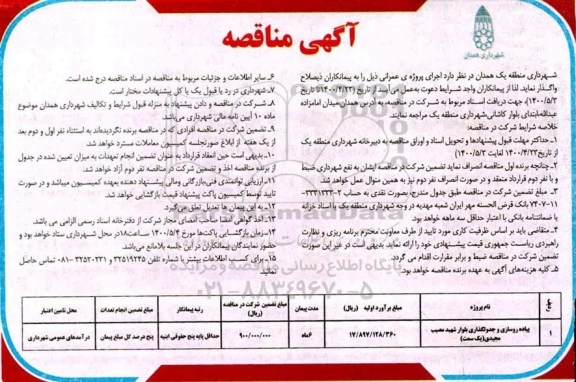 آگهی مناقصه
شهرداری همدان
شهرداری منطقه یک همدان در نظر دارد اجرای پروژه ی عمرانی ذیل را به پیمانکاران ذیصلاح
واگذار نماید. لذا از پیمانکاران واجد شرایط دعوت به عمل می آید از تاریخ (۱۴۰۰/۴/۲۳ تا تاریخ
۱۴۰۰/۵/۳)، جهت دریافت اسناد مربوط به شرکت در مناقصه، به آدرس همدان-میدان امامزاده
عبداله-ابتدای بلوار کاشانی-شهرداری منطقه یک مراجعه نمایند.
خلاصه شرایط شرکت در مناقصه:
۱- حداکثر مهلت قبول پیشنهادها و تحویل اسناد و اوراق مناقصه به دبیرخانه شهرداری منطقه یک
از تاریخ ۱۴۰۰/۴/۲۳ لغایت ۱۴۰۰/۵/۳)
۲- چنانچه برنده اول مناقصه انصراف نماید تضمین شرکت در مناقصه ایشان به نفع شهرداری ضبط
و با نفر دوم قرارداد منعقد و در صورت انصراف نفر دوم نیز به همین منوال عمل خواهد شد.
۳- مبلغ تضمین شرکت در مناقصه طبق جدول مندرج، بصورت نقدی به حساب
بانک قرض الحسنه مهر ایران شعبه مهدیه در وجه شهرداری منطقه یک یا اسناد خزانه
یا ضمانتنامه بانکی با اعتبار حداقل سه ماهه خواهد بود.
۴- متقاضی باید بر اساس ظرفیت کاری مورد تایید از طرف معاونت محترم برنامه ریزی و نظارت
راهبردی ریاست جمهوری قیمت پیشنهادی خود را ارائه نماید بدیهی است در غیر این صورت
تضمین شرکت در مناقصه ضبط و برابر مقررات اقدام می گردد.
۵- کلیه هزینه های آگهی به عهده برنده مناقصه خواهد بود.
۶- سایر اطلاعات و جزئیات مربوط به مناقصه در اسناد مناقصه درج شده است.
۷- شهرداری در رد یا قبول یک یا کل پیشنهادات مختار است.
۸- شرکت در مناقصه و دادن پیشنهاد به منزله قبول شرایط و تکالیف شهرداری همدان موضوع
ماده ۱۰ آیین نامه مالی شهرداری می باشد.
۹- تضمین شرکت در مناقصه افرادی که در مناقصه برنده نگردیده اند به استثناء نفر اول و دوم بعد
از یک هفته از ابلاغ صورتجلسه کمیسیون معاملات مسترد خواهد شد.
۱۰- بدیهی است حین انعقاد قرارداد به عنوان تضمین انجام تعهدات به میزان تعیین شده در جدول
از برنده مناقصه اخذ و تضمین شرکت در مناقصه نفر دوم آزاد خواهد شد.
۱۱- ارزیابی توانمندی فنی، بازرگانی ومالی پیشنهاد دهنده بعهده کمیسیون میباشد و در صورت
تایید توسط کمیسیون پاکت پیشنهاد قیمت بازگشایی خواهد شد.
۱۲- به این پیمان ها تعدیل تعلق نمی گیرد.
۱۳- اخذ گواهی امضا صاحب امضای مجاز شرکت از دفترخانه اسناد رسمی الزامی می باشد.
۱۴- زمان بازگشایی پاکت ها مورخ ۱۴۰۰/۵/۴ ساعت ۱۸ در محل شهرداری ستاد خواهد بود و
حضور نمایندگان پیمانکاران در این جلسه بلامانع می باشد.
۱۵- برای کسب اطلاعات بیشتر با شماره تلفن ۳۲۵۱۹۲۴۵ و ۳۲۵۲۰۲۳۱-۰۸۱ تماس حاصل
نمایید.
پایگاه اطلاع رسانی مناقصه و مزایده
۰۲۱-۸۸۳۴۹۶۷۰-۵
ردیف نام پروژه مبلغ برآورد اولیه (ریال) مدت پیمان مبلغ تضمین شرکت در مناقصه (ریال) رتبه پیمانکار مبلغ تضمین انجام تعهدات محل تامین اعتبار
۱ پیاده روسازی و جدولگذاری بلوار شهید مصیب مجیدی(یک سمت) ۱۷/۸۹۷/۱۲۸/۳۶۰ ۶ماه ۹۰۰/۰۰۰/۰۰۰ حداقل پایه پنج حقوقی ابنیه پنج درصد کل مبلغ پیمان درآمدهای عمومی شهرداری